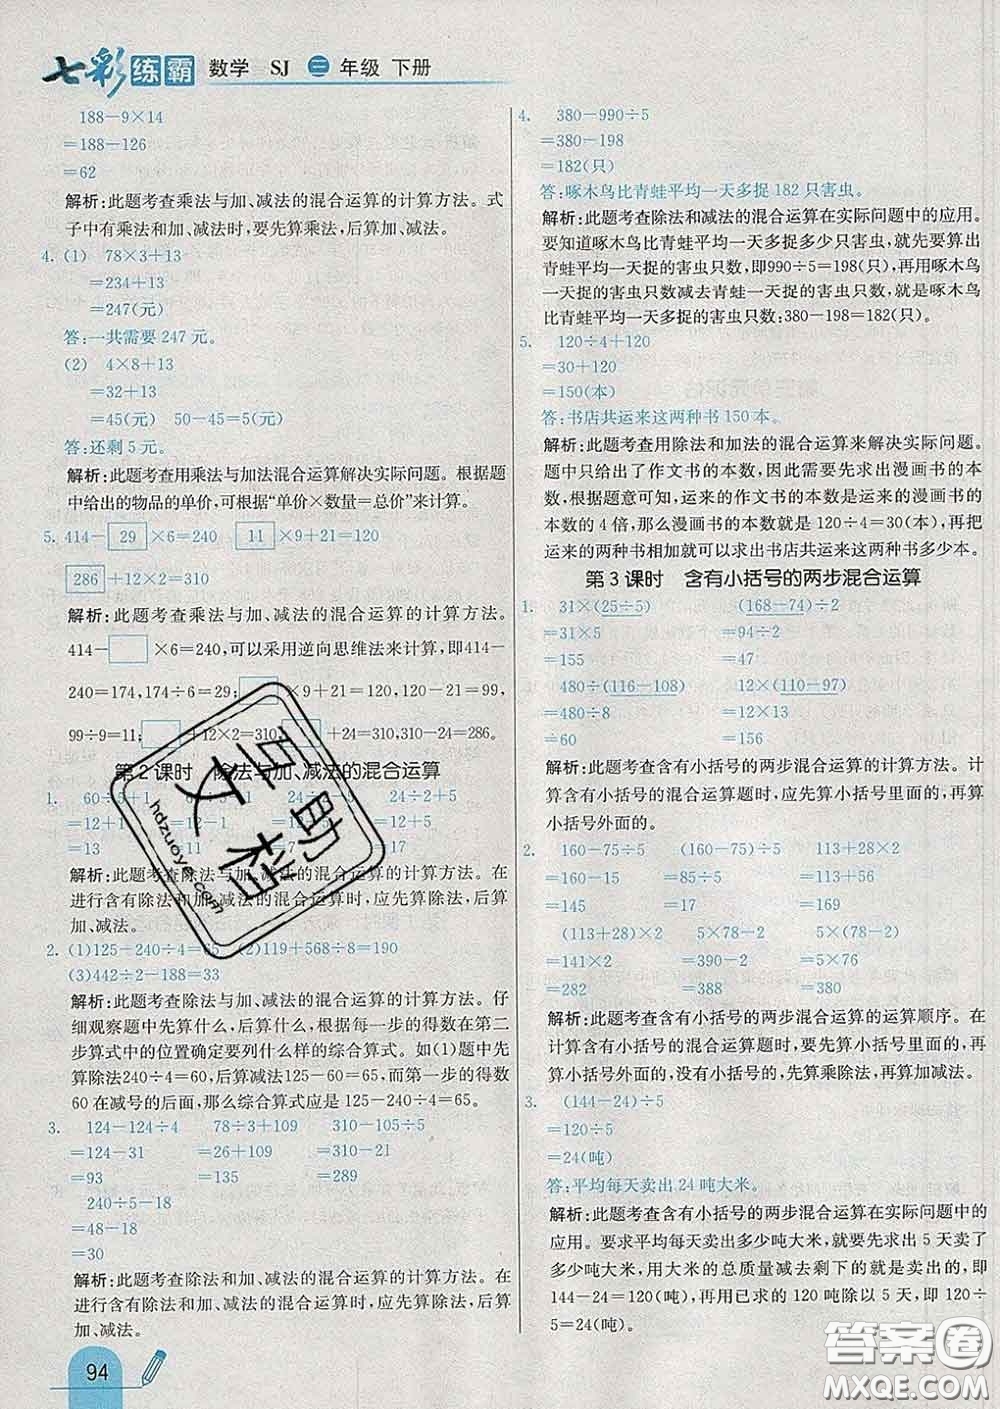 七彩练霸 数学 SJ 三年级 下册
188-9×14
=188-126
=62
解析:此题考查乘法与加、减法的混合运算的计算方法。式
子中有乘法和加、减法时,要先算乘法,后算加、减法。
4. (1) 78×3+13
=234+13
=247(元)
答:一共需要 247 元。
(2) 4×8+13
=32+13
=45(元) 50-45=5(元)
答:还剩 5 元。
解析:此题考查用乘法与加法混合运算解决实际问题。根据题
中给出的物品的单价,可根据“单价×数量=总价”来计算。
5. 414- 29 ×6=240 11 ×9+21=120
286 +12×2=310
解析:此题考查乘法与加、减法的混合运算的计算方法。
414- □ ×6=240,可以采用逆向思维法来计算,即414-
240=174,174÷6=29; □ ×9+21=120,120-21=99,
99÷9=11; □ +12×2=310, □ +24=310,310-24=286。
第 2 课时 除法与加、减法的混合运算
1. 60÷5+1 24÷2+5
=12+1 =12+5
=13 =17
解析:此题考查除法与加、减法的混合运算的计算方法。在
进行含有除法和加、减法的混合运算时,应先算除法,后算
加、减法。
2. (1)125-240÷4=65 (2)119+568÷8=190
(3)442÷2-188=33
解析:此题考查除法与加、减法的混合运算的计算方法。仔
细观察题中先算什么,后算什么,根据每一步的得数在第二
步算式中的位置确定要列什么样的综合算式。如(1)题中先
算除法240÷4=60,后算减法125-60=65,而第一步的得数
60 在减号的后面,那么综合算式应是 125-240÷4=65。
3. 124-124÷4 78÷3+109 310-21
=124-31 =26+109 =310-21
=93 =135 =289
240÷5-18
=48-18
=30
解析:此题考查除法和加、减法的混合运算的计算方法。在
进行含有除法和加、减法的混合运算时,应先算除法,后算
加、减法。
94
4. 380-990÷5
=380-198
=182(只)
答:啄木鸟比青蛙平均一天多捉 182 只害虫。
解析:此题考查除法和减法的混合运算在实际问题中的应用。
要知道啄木鸟比青蛙平均一天多捉多少只害虫,就先要算出
青蛙平均一天捉的害虫只数,即990÷5=198(只),再用啄木鸟
一天捉的害虫只数减去青蛙一天捉的害虫只数,就是啄木鸟
比青蛙平均一天多捉的害虫只数:380-198=182(只)。
5. 120÷4+120
=30+120
=150(本)
答:书店共运来这两种书 150 本。
解析:此题考查用除法和加法的混合运算来解决实际问题。
题中只给出了作文书的本数,因此需要先求出漫画书的本
数,根据题意可知,运来的作文书的本数是运来的漫画书的
本数的 4 倍,那么漫画书的本数就是 120÷4=30(本),再把
运来的两种书相加就可以求出书店共运来这两种书多少本。
第 3 课时 含有小括号的两步混合运算
1. 31×(25÷5) (168-74)÷2
=31×5 =94÷2
=155 =47
480÷(116-108) 12×(110-97)
=480÷8 =12×13
=60 =156
解析:此题考查含有小括号的混合运算的计算方法。计
算含有小括号的混合运算题时,应先算小括号里面的,再算
小括号外面的。
2. 160-75÷5 (160-75)÷5 113+28×2
=160-15 =85÷5 =113+56
=145 =17 =169
(113+28)×2 5×78-2 5×(78-2)
=141×2 =390-2 =5×76
=282 =388 =380
解析:此题考查含有小括号的两步混合运算的运算顺序。在
计算含有小括号的混合运算题时,要先算小括号里面的,再
算小括号外面的,没有小括号的,先算乘除法,再算加减法。
3. (144-24)÷5
=120÷5
=24(吨)
答:平均每天卖出 24 吨大米。
解析:此题考查含有小括号的两步混合运算在实际问题中的
应用。要求平均每天卖出多少吨大米,就要先求出 5 天卖了
多少吨大米,用大米的总质量减去剩下的就是卖出的,即
144-24=120(吨),再用已求的 120 吨除以 5 天,即 120÷
5=24(吨)。
互助文档
hdzuoye.com
答案圈
MXQE.COM